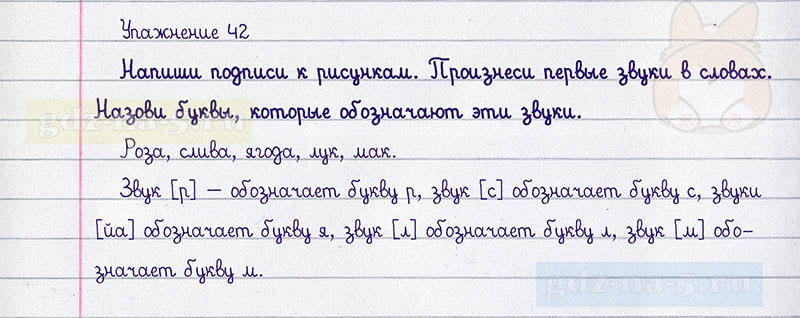 Упажнение 42
Напиши подписи к рисункам. Произнеси первые звуки в словах.
Назови буквы, которые обозначают эти звуки.
gdz-na-5.ru
Роза, слива, ягода, лук, мак.
Звук [р] – обозначает букву р, звук [с] обозначает букву с, звуки
[йа] обозначает букву я, звук [л] обозначает букву л, звук [м] обо-
значает букву м.
gdz-na-5.ru